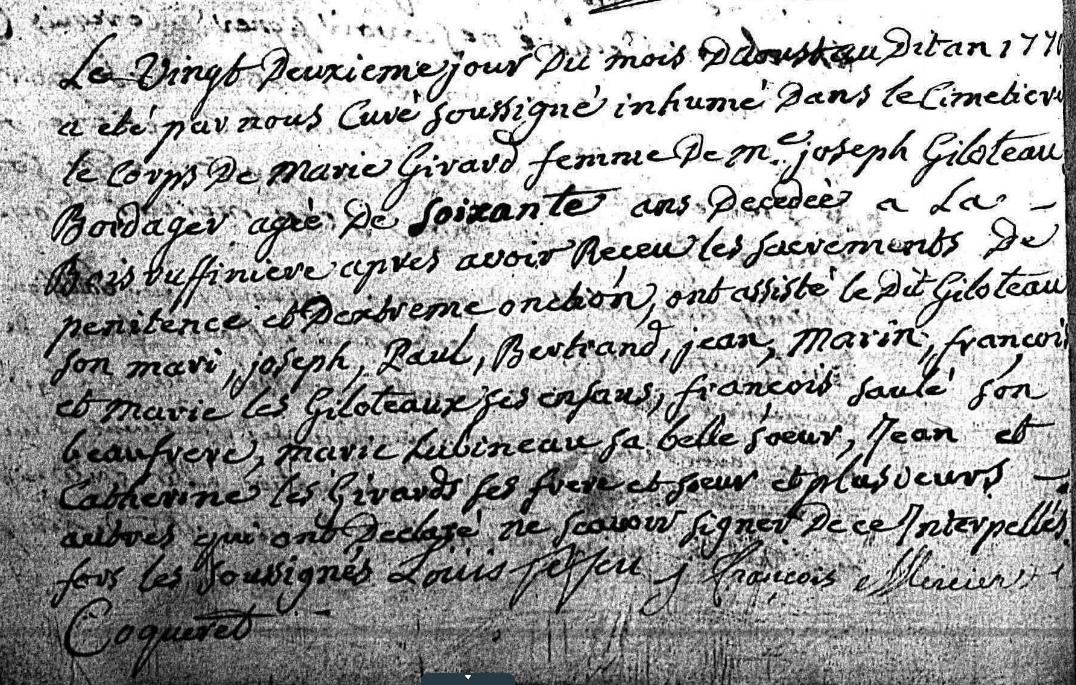 Le Vingt Deuxieme jour Du mois Daoust au Dit an 177
a eté par nous Curé soussigné inhumé Dans le Cimetiere
le Corps De Marie Girard femme De me. joseph Giloteau
Bordager agée De soixante ans Decedeé a La -
Bois ruffiniere apres avoir Receu les sacrements De
penitence et Dextreme onction, ont assisté le Dit Giloteau
son mari, joseph, Paul, Bertrand, jean, Marin, francois
et Marie les Giloteaux ses enfans, francois saulé son
beaufrere, marie Lubineau sa belle soeur, Jean et
Catherine les Girards ses frere et soeur et plusieurs -
autres qui ont Declaré ne scavoir signer De ce Interpellés
fors les soussignés Louis j françois Mercier
Coqueret